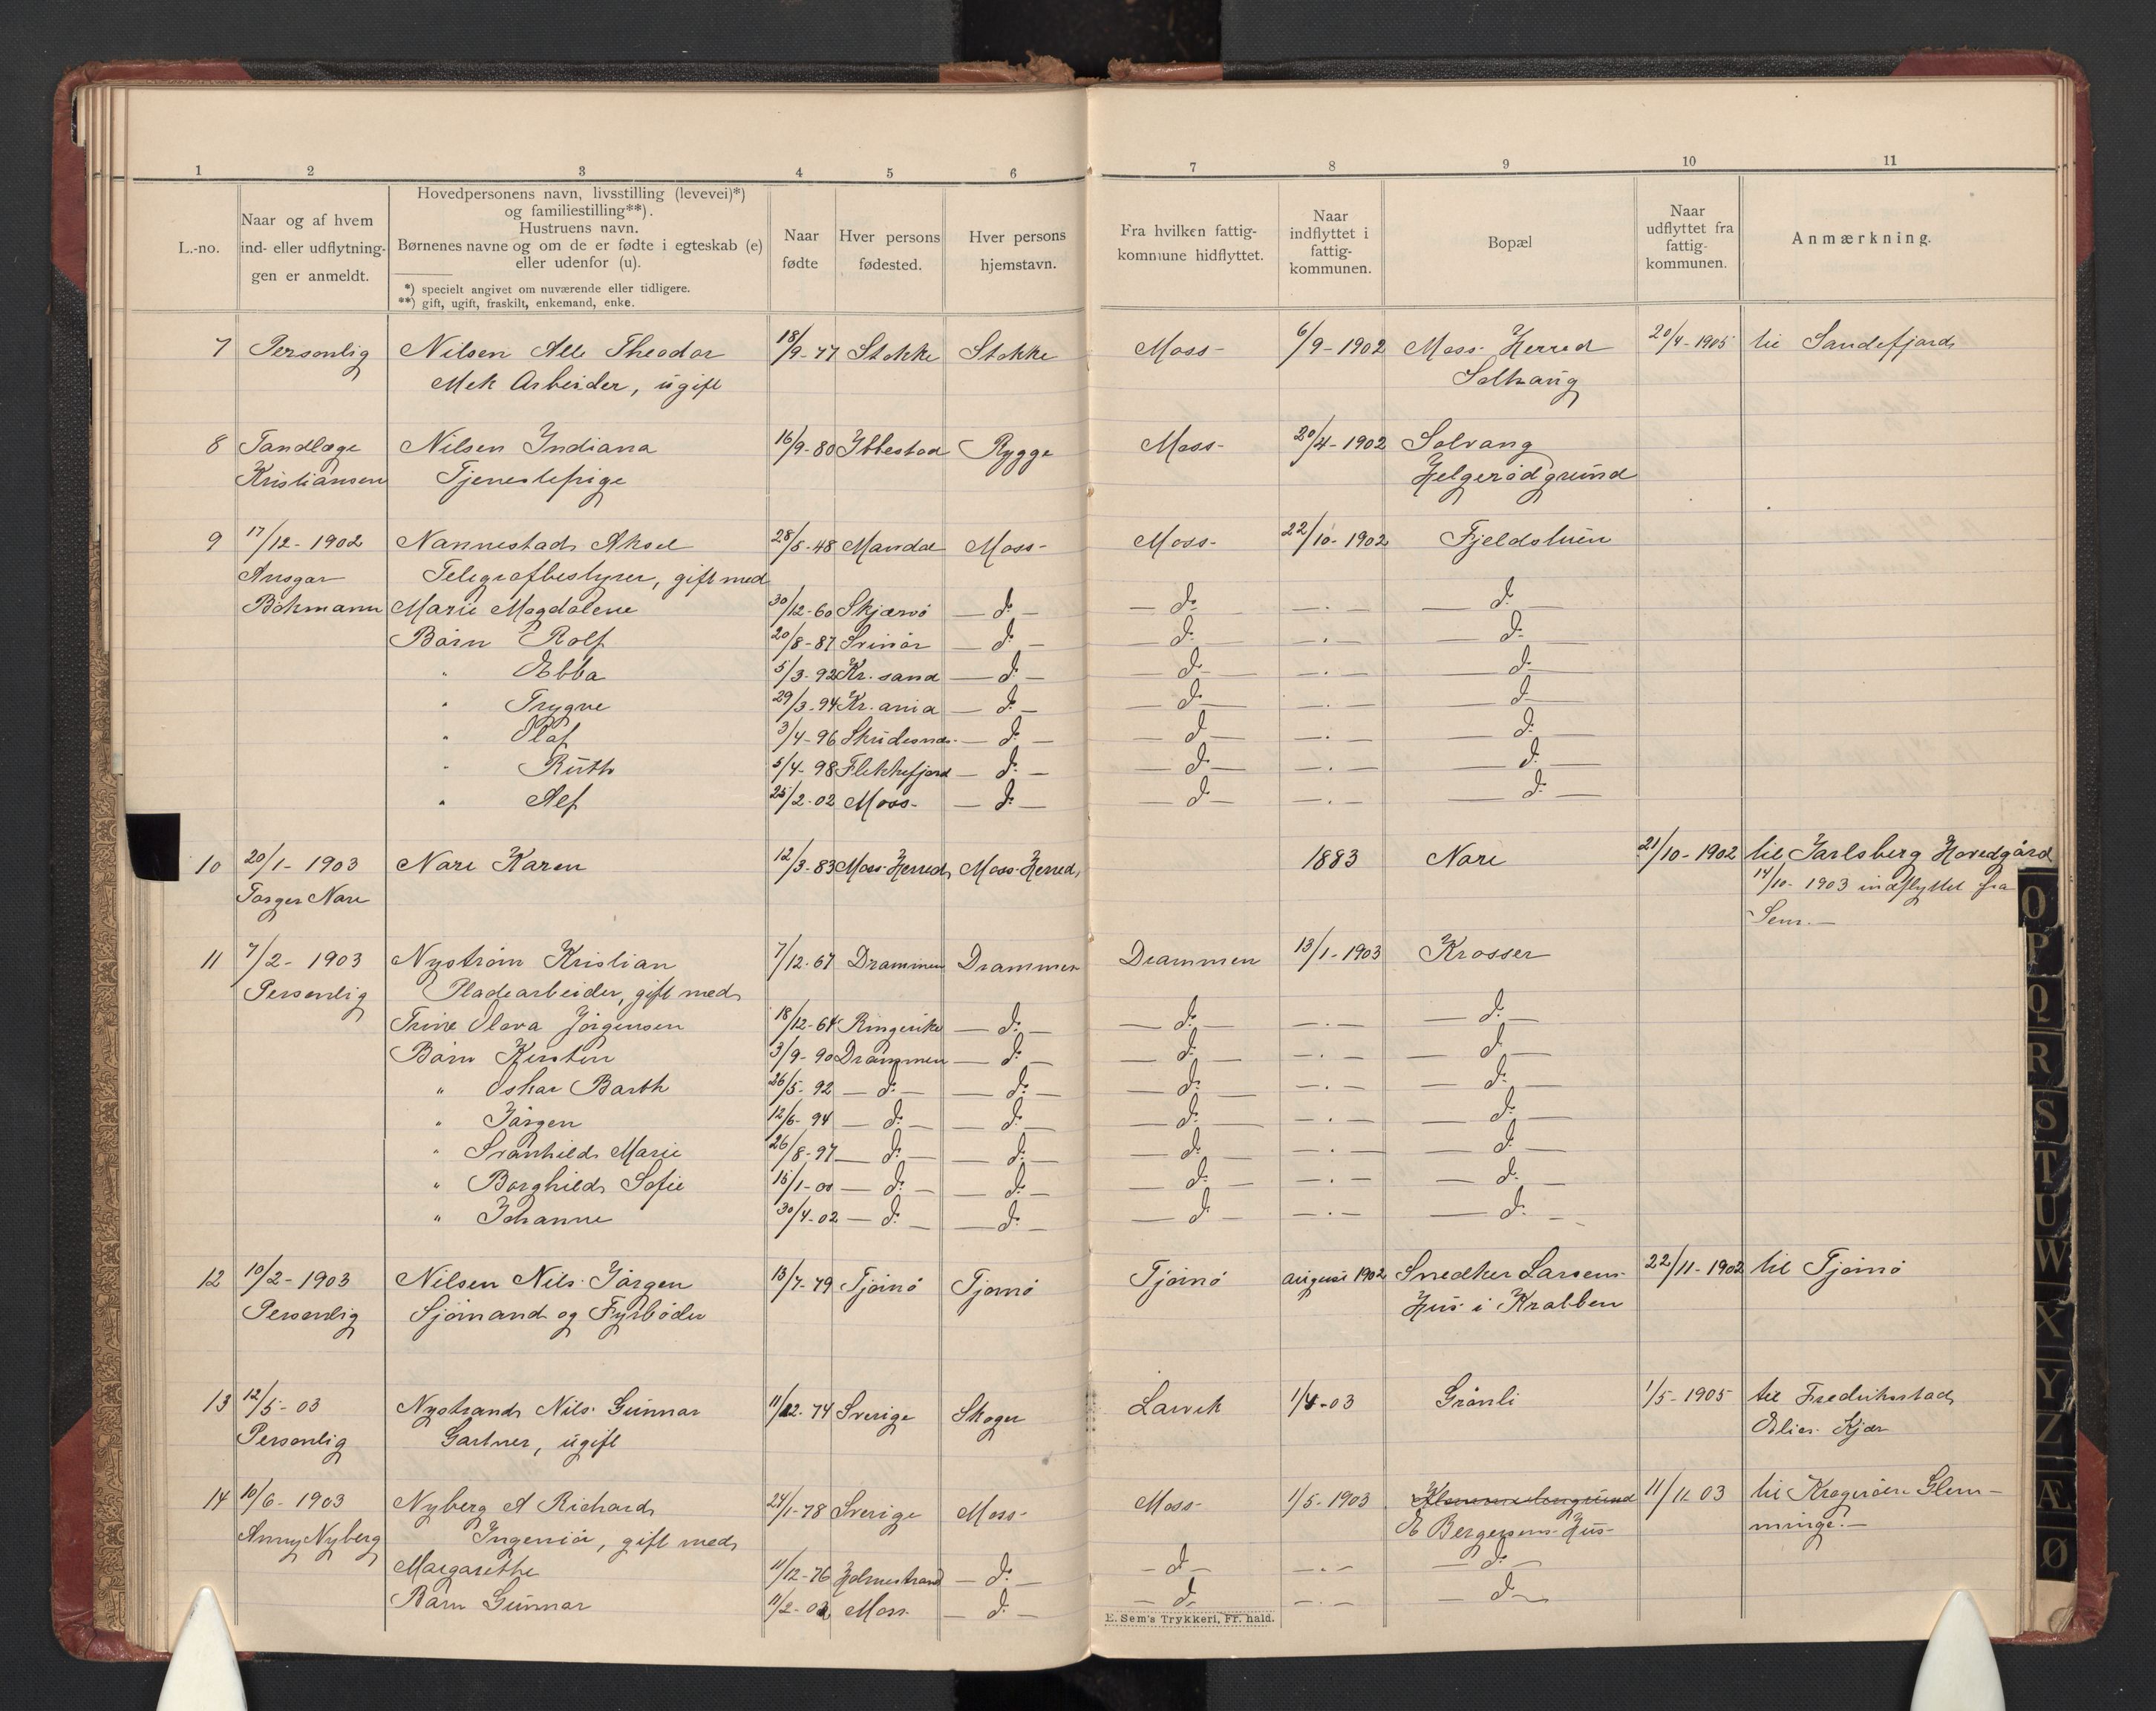 1 2 3 4 5 6 7 8 9 10 11
L.-no.
Naar og af hvem
ind- eller udflytnin-
gen er anmeldt.
Hovedpersonens navn, livsstilling (levevei)*)
og familiestilling**).
Hustruens navn.
Børnenes navne og om de er fødte i egteskab (e)
eller udenfor (u).
*) specielt angivet om nuværende eller tidligere.
**) gift, ugift, fraskilt, enkemand, enke.
Naar
fødte
Hver persons
fødested.
Hver persons
hjemstavn.
Fra hvilken fattig-
kommune hidflyttet.
Naar
indflyttet i
fattig-
kommunen.
Bopæl
Naar
udflyttet fra
fattig-
kommunen.
Anmærkning.
7 Personlig Nilsen Alle Theodor 18/9-77 Stokke Stokke Moss- 6/9-1902 Moss Herred 20/4-1905 til Sandefjord
Mek Arbeider, ugift Solhaug
8 Tandlæge Nilsen Indiana 16/9-80 Ibbestad Rygge Moss- 20/4-1902 Solvang
Kristiansen Tjenestepige Helgerødgrund
9 17/12-1902 Nannestad Aksel 28/5-48 Mandal Moss- Moss- 22/10-1902 Fjeldstuen
Ansgar Telegrafbestyrer, gift med
Bökmann Marie Magdalene 30/12-60 Skjærvö — d: — — d: — —.— — d: —
Börn Rolf 20/8-87 Svinör — d: — — d: — —.— — d: —
" Ebba 5/3-92 Kr.sand — d: — — d: — —.— — d: —
" Trygve 29/3-94 Kr.ania — d: — — d: — —.— — d: —
" Olaf 3/4-96 Skudesnæs — d: — — d: — —.— — d: —
" Ruth 5/4-98 Flekkefjord — d: — — d: — —.— — d: —
" Alf 25/2-02 Moss- — d: — — d: — —.— — d: —
10 20/1-1903 Nore Karen 12/3-83 Moss Herred Moss Herred 1883 Nore 21/10-1902 til Jarlsberg Hovedgård
Torger Nore 14/10-1903 indflyttet fra
Sem.—
11 7/2-1903 Nyström Kristian 7/12-67 Drammen Drammen Drammen 13/1-1903 Krosser
Personlig Pladearbeider, gift med
Trine Olava Jörgensen 18/12-64 Ringerike — d: — — d: — —.— — d: —
Börn Kersten 3/9-90 Drammen — d: — — d: — —.— — d: —
" Oskar Barth 26/5-92 — d: — — d: — — d: — —.— — d: —
" Jörgen 12/6-94 — d: — — d: — — d: — —.— — d: —
" Svanhild Marie 26/8-97 — d: — — d: — — d: — —.— — d: —
" Borghild Sofie 15/1-00 — d: — — d: — — d: — —.— — d: —
" Johanne 30/4-02 — d: — — d: — — d: — —.— — d: —
12 10/2-1903 Nilsen Nils Jörgen 13/7-79 Tjömö Tjömö Tjömö august 1902 Snedker Larsens 22/11-1902 til Tjömö
Personlig Sjömand og Fyrböder Hus i Krabben
13 12/5-03 Nystrand Nils Gunnar 11/12-74 Sverige Skoger Larvik 1/4-03 Grönli 1/5-1905 til Fredrikstad
Personlig Gartner, ugift Elies Kjær
14 10/6-1903 Nyberg A Richard 24/1-78 Sverige Moss- Moss- 1/5-1903 11/11 03 til Kragerøen Glem-
Anny Nyberg Ingeniör, gift med E Bergersens Hus- minge.—
Margarethe 11/12-76 Holmestrand — d: — — d: — —.— — d: —
Barn Gunnar 11/2-02 Moss — d: — — d: — —.— — d: —
E. Sem's Trykkeri, Fr.hald.
O
P
Q
R
S
T
U
W
X
Y
Z
Æ
Ø